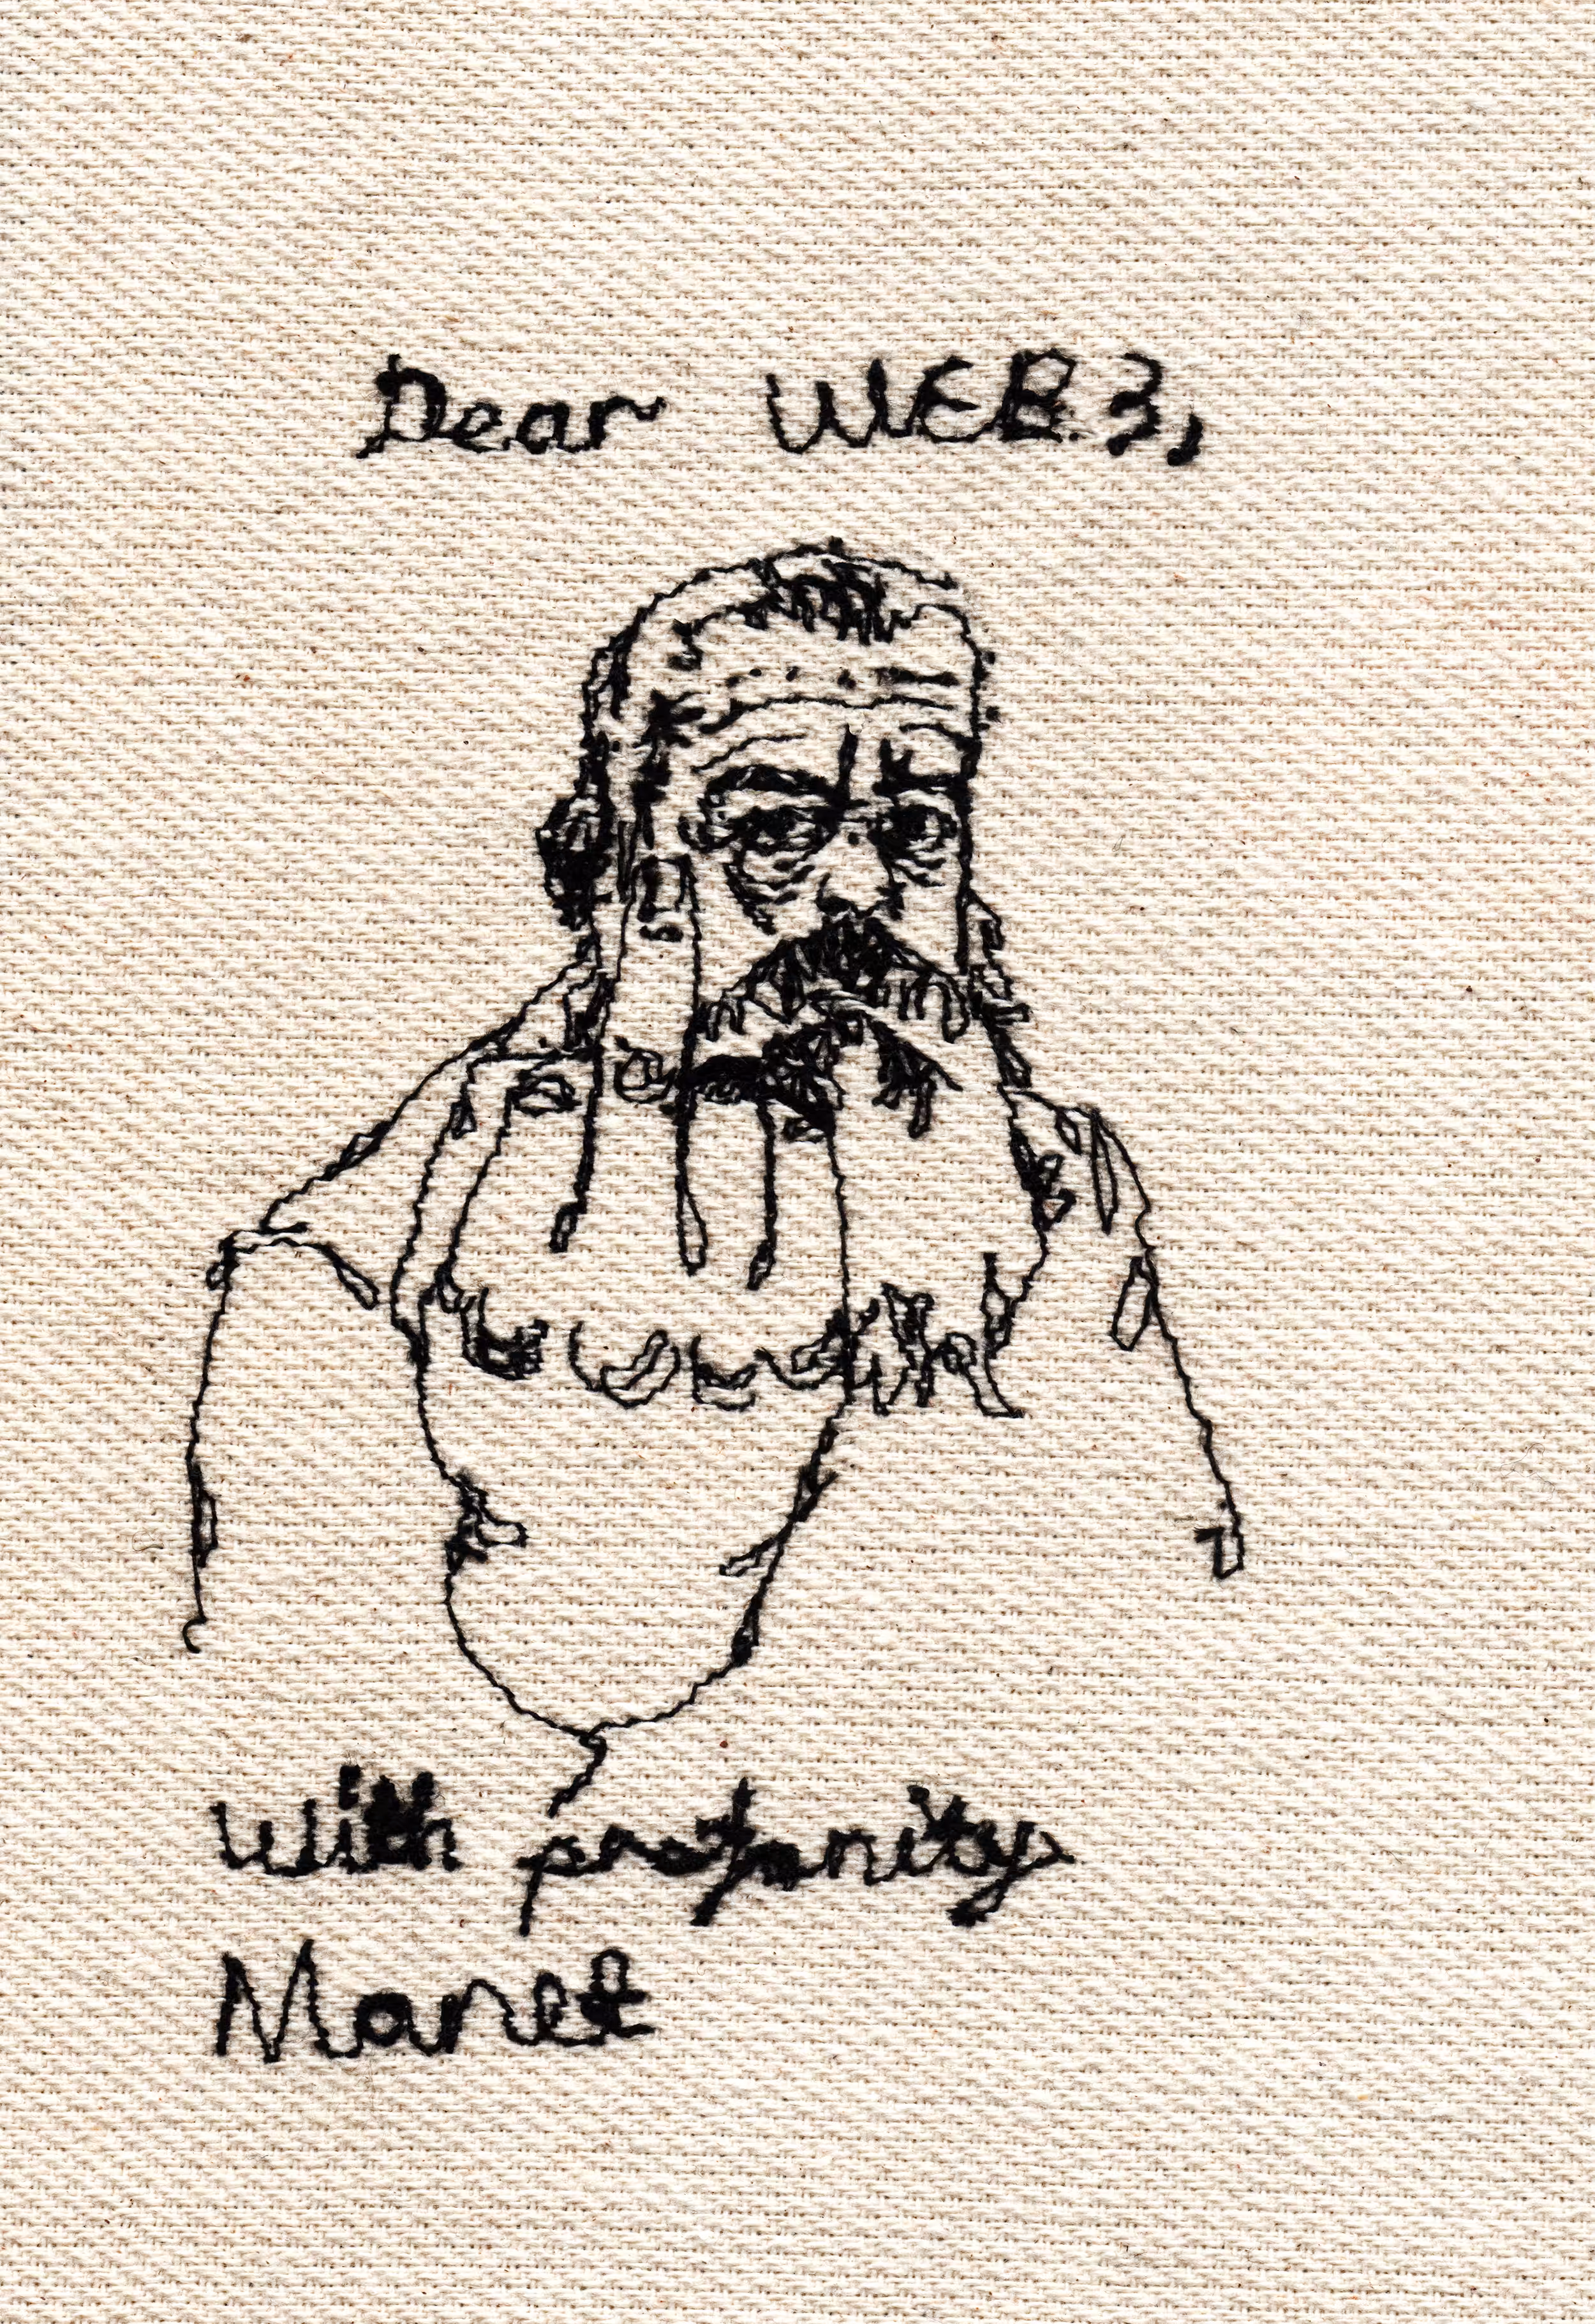 Dear WEB3,
With profanity
Manet